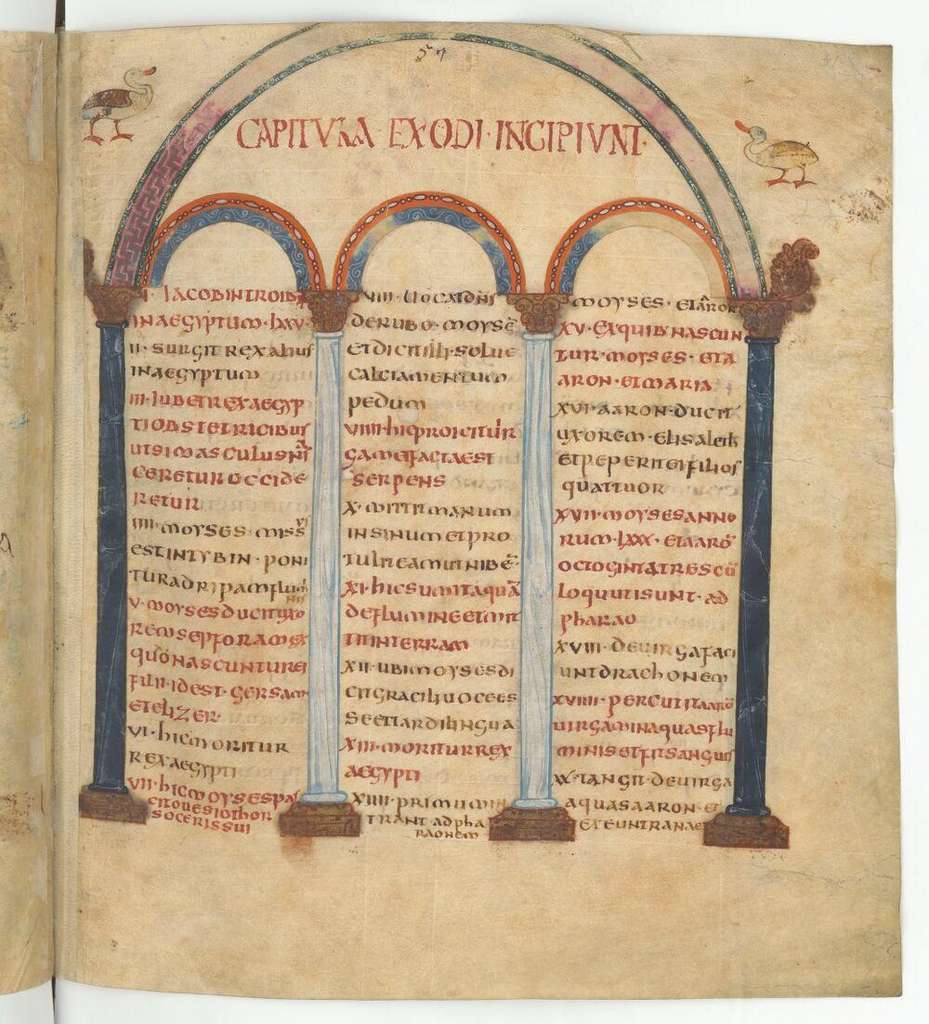 CAPITVLA EXODI·INCIPIVNT·
I· IACOB INTROIBIT
IN AEGYPTUM·LXXV·
II· SURGIT REX ALIUS
IN AEGYPTUM
III· IUBET REX AEGYP
TI OBSTETRICIBUS
UT SI MASCULUS
CERETUR OCCIDE
RETUR
IIII· MOYSES· MISSUS
EST IN TYBIN· PONI
TUR AD RIPAM FLUMI
V· MOYSES DUCIT UXO
REM SEPFORAM EX
QUO NASCUNTUR EI
FILII· IDEST· GERSAM
ET ELIZER·
VI· HIC MORITUR
REX AEGYPTI
VII· HIC MOYSES PAS
CIT OVES IOTHOR
SOCERI SSUI
VIII· UOCAT DNS
DE RUBO· MOYSE
ET DICIT ILLI· SOLUE
CALCIAMENTUM
PEDUM
VIIII· HIC PROICIT UIR
GAM ET FACTA EST
SERPENS
X· MITTIT MANUM
IN SINUM ET PRO
TULIT EAM UT NIBE
XI· HIC SUMIT AQUA
DE FLUMINE ET MIT
TIT IN TERRAM
XII· UBI MOYSES DI
CIT GRACILI UOCE ES
SE ET TARDI LINGUA
XIII· MORITUR REX
AEGYPTI
XIIII· PRIMUM IN
TRANT AD PHA
RAONEM
MOYSES· ET AARON
XV· EX QUIB NASCUN
TUR· MOYSES· ET A
ARON· ET MARIA
XVI· AARON· DUCIT
UXOREM· ELISABETH
ET PEPERIT EI FILIOS
QUATTUOR
XVII· MOYSES ANNO
RUM· LXXX· ET AARO
OCTOGINTA TRES CU
LOQUUTI SUNT· AD
PHARAO
XVIII· DE UIRGA FACI
UNT DRACHONEM
XVIIII· PERCUTIT AARO
UIRGAM IN AQUAS FLU
MINIS ET FIT SANGUIS
XX· TANGIT· DE UIRGA
AQUAS AARON· ET
EXEUNT RANAE